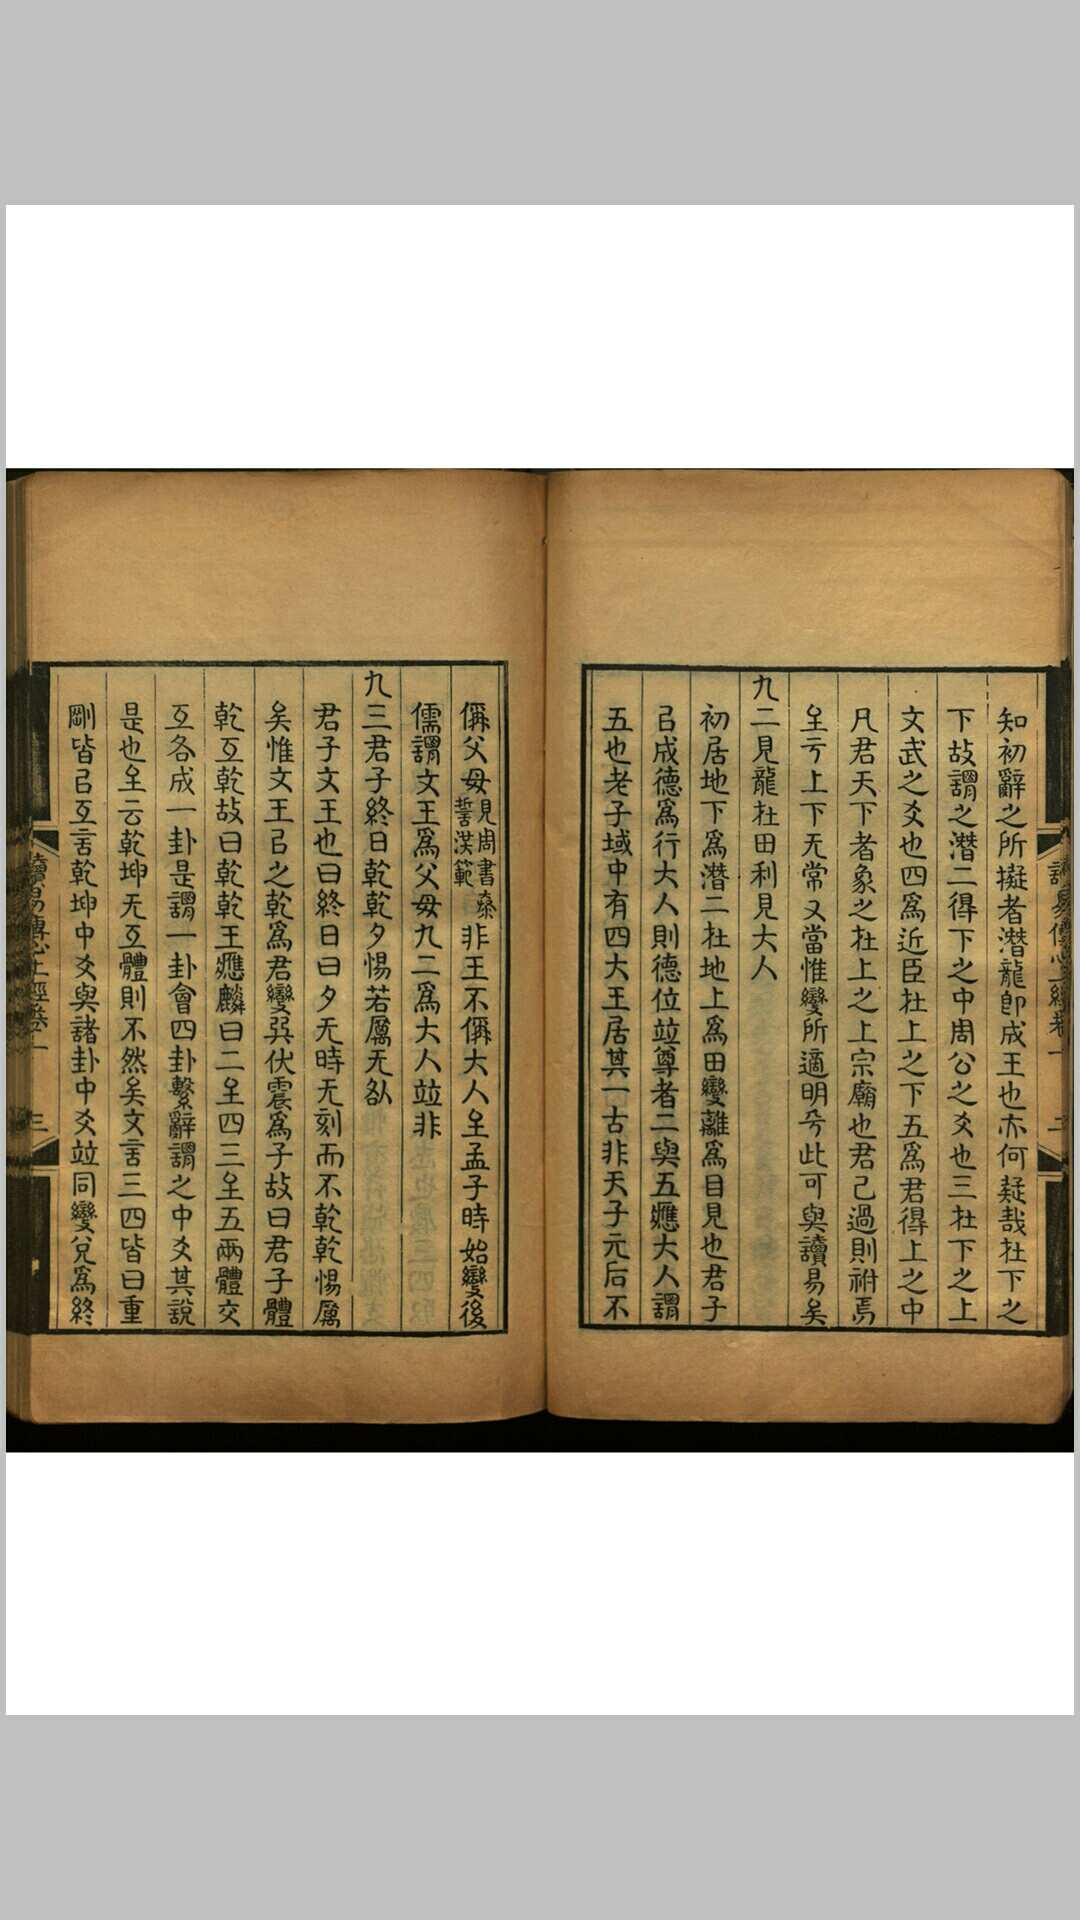 知初辭之所擬者潛龍卽成王也亦何疑哉在下之
下故謂之潛二得下之中周公之爻也三在下之上
文武之爻也四爲近臣在上之下五爲君得上之中
凡君天下者象之在上之上宗廟也君己過則祔焉
至亏上下无常又當惟變所適明乎此可與讀易矣
九二見龍在田利見大人
初居地下爲潛二在地上爲田變離爲目見也君子
㠯成德爲行大人則德位竝尊者二與五應大人謂
五也老子域中有四大王居其一古非天子元后不
偁父母見周書泰誓漢範非王不偁大人至孟子時始變後
儒謂文王爲父母九二爲大人竝非
九三君子終日乾乾夕惕若厲无咎
君子文王也曰終日曰夕无時无刻而不乾乾惕厲
矣惟文王㠯之乾爲君變巽伏震爲子故曰君子體
乾互乾故曰乾乾王應麟曰二至四三至五兩體交
互各成一卦是謂一卦會四卦繫辭謂之中爻其說
是也至云乾坤无互體則不然矣文言三四皆曰重
剛皆㠯互言乾坤中爻與諸卦中爻竝同變兌爲終
讀易傳心上經卷一
三